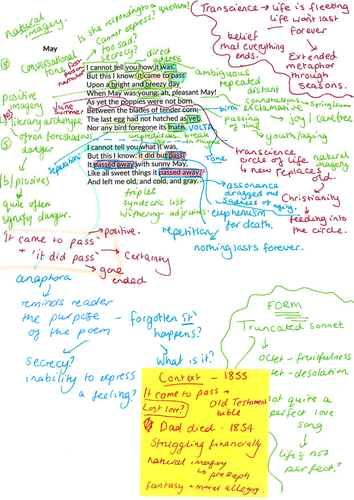 natural imagery.
Is she responding to a question?
Cannot express?
too sad?
secrecy?
direct address
May
conversational tone
First person narration
I cannot tell you how it was;
But this I know: it came to pass
Upon a bright and breezy day
When May was young; ah, pleasant May!
As yet the poppies were not born
Between the blades of tender corn;
The last egg had not hatched as yet,
Nor any bird foregone its mate.
I cannot tell you what it was,
But this I know: it did but pass.
It passed away with sunny May,
Like all sweet things it passed away,
And left me old, and cold, and gray.
Transcience → life is fleeting
life won't last forever
belief that everything ends.
Extended metaphor through seasons.
ambiguous
repeated
distant
connotations → Spring/summer
exclamative
joy / carefree
birth
passing of time
youth/aging
VOLTA
unpredictable break
Tone
positive imagery
June
Summer
literary archetype
often foreshadows danger
/b/ plosives
quite often signify danger.
Repetition
transcience
circle of life → new replaces old.
natural imagery
Christianity
feeding into the circle.
assonance
dragged out
sadness of aging.
euphemism for death.
triplet
syndetic list
withering adjectives
repetition
nothing lasts forever.
'it came to pass' → positive.
+ 'it did pass' → certainty
gone
ended
anaphora
reminds reader the purpose of the poem
forgotten 'it' happens?
What is it?
secrecy?
inability to express a feeling?
FORM
Truncated sonnet
octet - fruitfulness
-desolation
not quite a perfect love song
life's not perfect?
Context - 1855
It came to pass → Old Testament bible
Lost love?
Dad died - 1854
Struggling financially
natural imagery
↳ preRaph
fantasy + moral allegory.